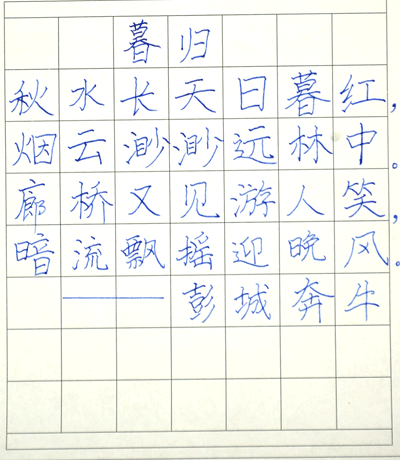 暮归
秋水长天日暮红，
烟云渺渺远林中。
廊桥又见游人笑，
暗流飘摇迎晚风。
———彭城奔牛